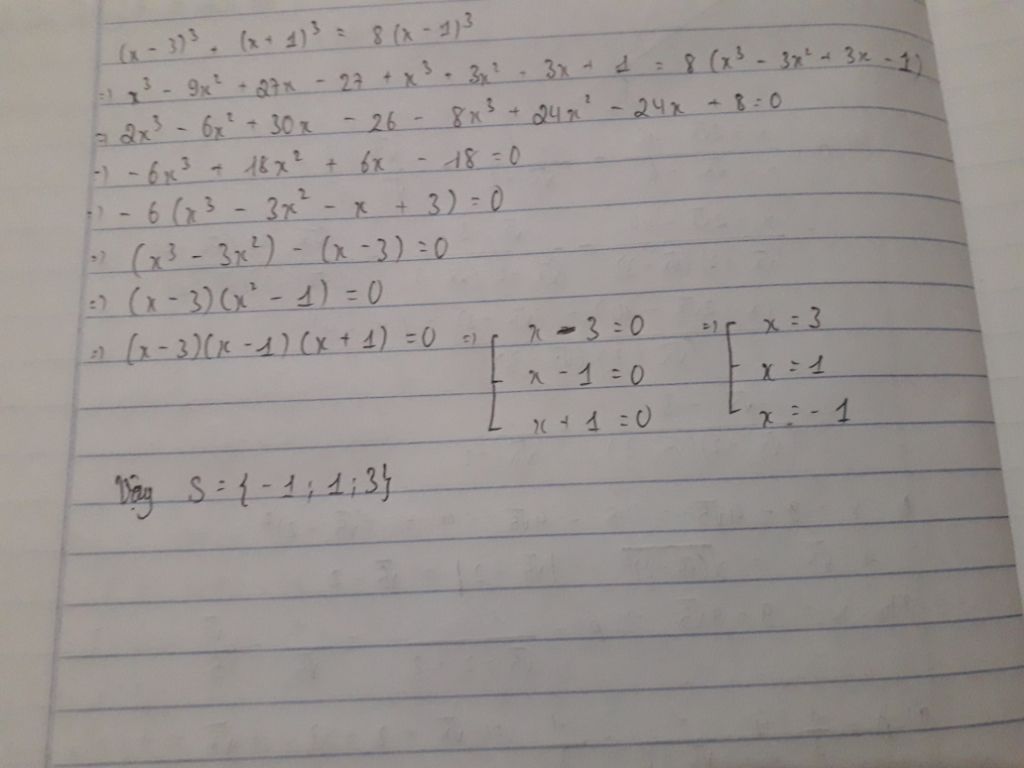 (x - 3)³ + (x + 1)³ = 8(x - 1)³
=) x³ - 9x² + 27x - 27 + x³ + 3x² + 3x + 1 = 8(x³ - 3x² + 3x - 1)
=) 2x³ - 6x² + 30x - 26 - 8x³ + 24x² - 24x + 8 = 0
=) - 6x³ + 18x² + 6x - 18 = 0
=) - 6(x³ - 3x² - x + 3) = 0
=) (x³ - 3x²) - (x - 3) = 0
=) (x - 3)(x² - 1) = 0
=) (x - 3)(x - 1)(x + 1) = 0 =) [ x - 3 = 0 =) [ x = 3
x - 1 = 0 x = 1
x + 1 = 0 x = - 1
Vậy S = {-1; 1; 3}